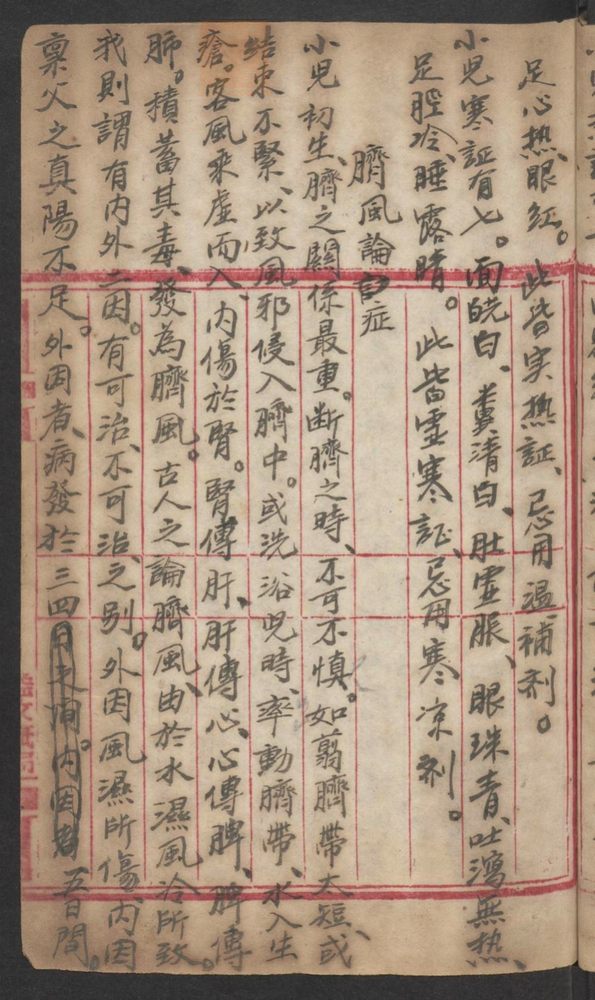 足心热、眼紅。此皆实热証、忌用温補剤。
小児寒証有七。面㿠白、糞清白、肚虚脹、眼珠青、吐瀉無热、
足脛冷、睡露睛。此皆虚寒証、忌用寒凉剤。
臍風論症
小児初生、臍之關係最重。断臍之時、不可不慎。如剪臍帶太短、或
結束不緊、以致風邪侵入臍中。或洗浴児時、牽動臍帶、水入生
瘡。客風乘虚而入、内傷於腎。腎傳肝、肝傳心、心傳脾、脾傳
肺。積蓄其毒、發為臍風。古人之論臍風、由於水濕風冷所致。
我則謂有内外二因。有可治、不可治、之别。外因風濕所傷、内因
禀父之真陽不足。外因者、病發於三四日之间。内因者五日間。